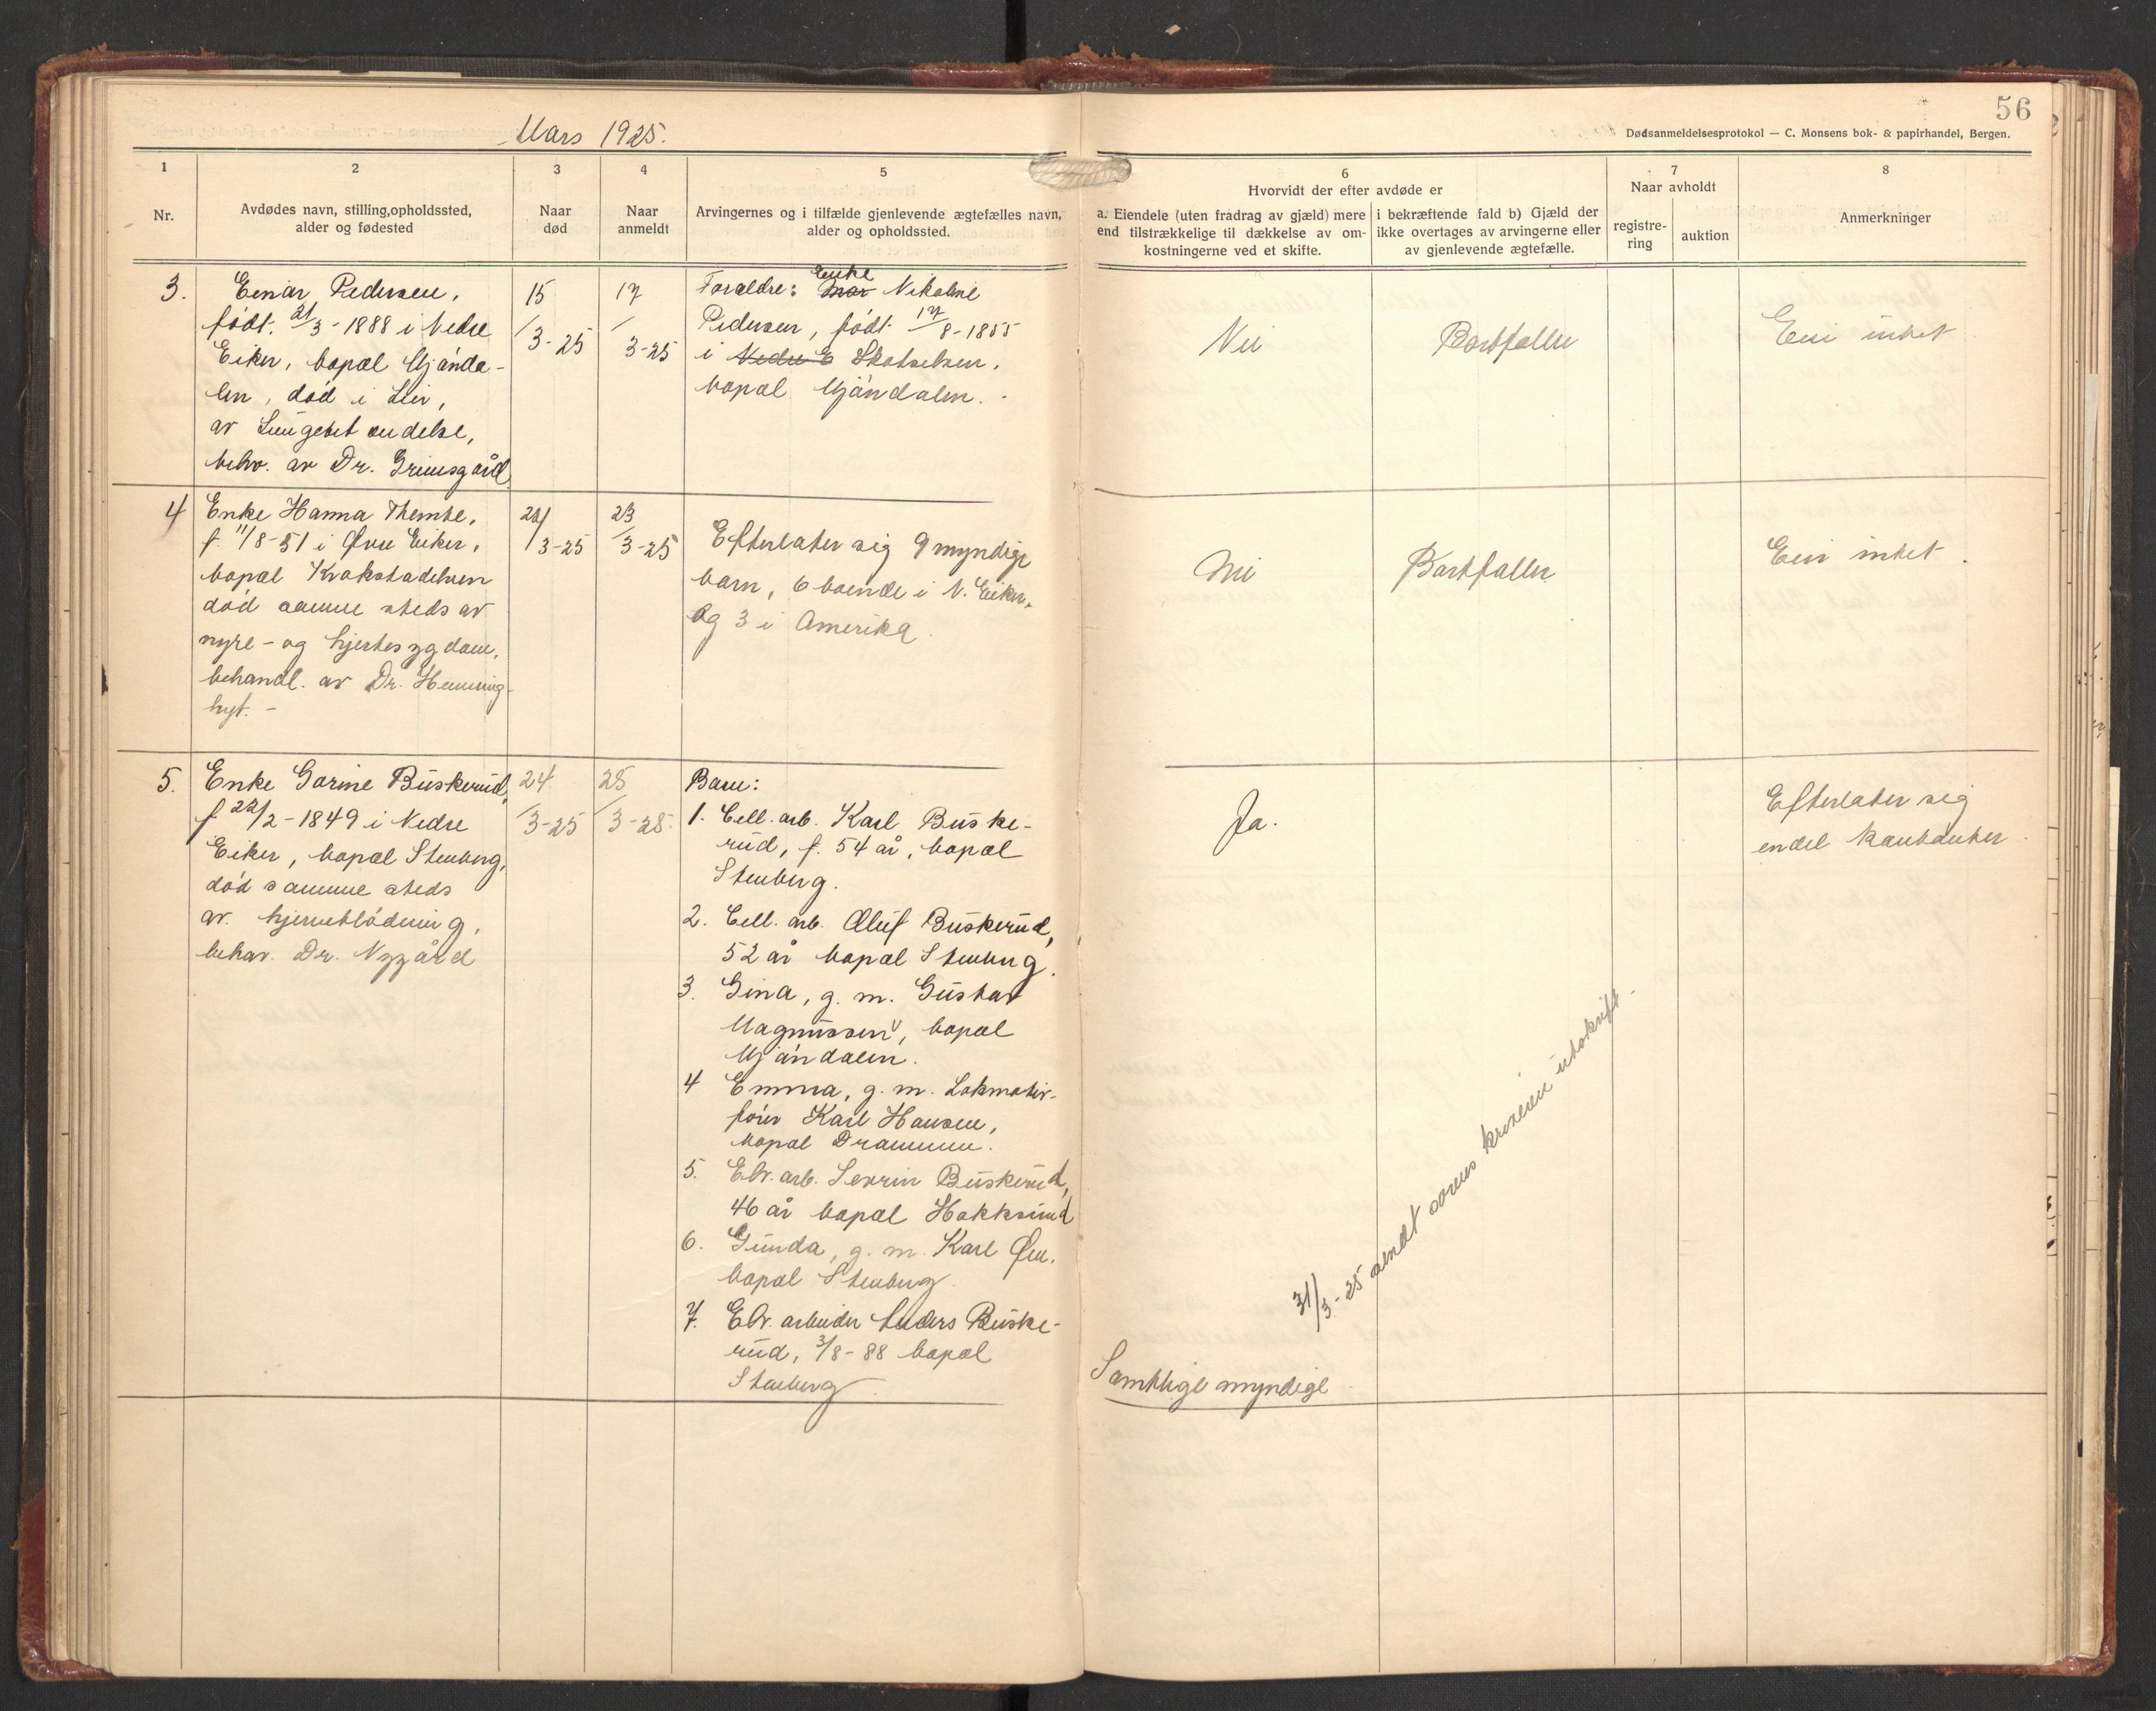 56
Mars 1925.
Dødsanmeldelsesprotokol — C. Monsens bok- & papirhandel, Bergen.
1
2
3
4
5
6
7
8
Nr.
Avdødes navn, stilling, opholdssted,
alder og fødested
Naar
død
Naar
anmeldt
Arvingernes og i tilfælde gjenlevende ægtefælles navn,
alder og opholdssted.
Hvorvidt der efter avdøde er
a. Eiendele (uten fradrag av gjæld) mere
end tilstrækkelige til dækkelse av om-
kostningerne ved et skifte.
i bekræftende fald b) Gjæld der
ikke overtages av arvingerne eller
av gjenlevende ægtefælle.
Naar avholdt
registre-
ring
auktion
Anmerkninger
3.
Einar Pedersen,
født. 21/3-1888 i Nedre
Eiker, bopæl Mjønda-
len, død i Lier,
av Lungebetændelse,
behv. av Dr. Grimsgård
15
/3-25
17
/3-25
Forældre: Enke
Mor Nikoline
Pedersen, født 17/8-1855
i Nedre E Skotselven,
bopæl Mjøndalen.
Nei
Bortfaller
Eier intet
4
Enke Hanna Themte,
f. 11/8-51 i Øvre Eiker,
bopæl Krokstadelven
død samme steds av
nyre- og hjertesygdom,
behandl. av Dr. Henning-
/3-25
23
/3-25
Efterlater sig 9 myndige
barn, 6 boende i N. Eiker,
og 3 i Amerika.
Nei
Bortfaller
Eier intet.
5.
Enke Gorine Buskerud,
f. 22/2-1849 i Nedre
Eiker, bopæl Stenberg,
død samme steds
av hjerneblødning,
behav. Dr. Nygård
24
/3-25
25
/3-25.
Barn:
1. Cell. arb. Karl Buske-
rud, f. 54 år, bopæl
Stenberg.
2. Cell. arb. Oluf Buskerud,
52 år bopæl Stenberg.
3. Gina, g. m. Gustav
Magnussen, bopæl
Mjøndalen.
4 Emma, g. m. Lokmotiv-
fører Karl Hansen,
bopæl Drammen.
5. Elv. arb. Severin Buskerud,
46 år bopæl Hokksund
6. Gunda, g. m. Karl Øen,
bopæl Stenberg.
7. Elv. arbeider Anders Buske-
rud, 3/8-88 bopæl
Stenberg.
Ja.
Efterlater sig
endel kontanter.
31/3-25 sendt
utskrift.
Samtlige myndige